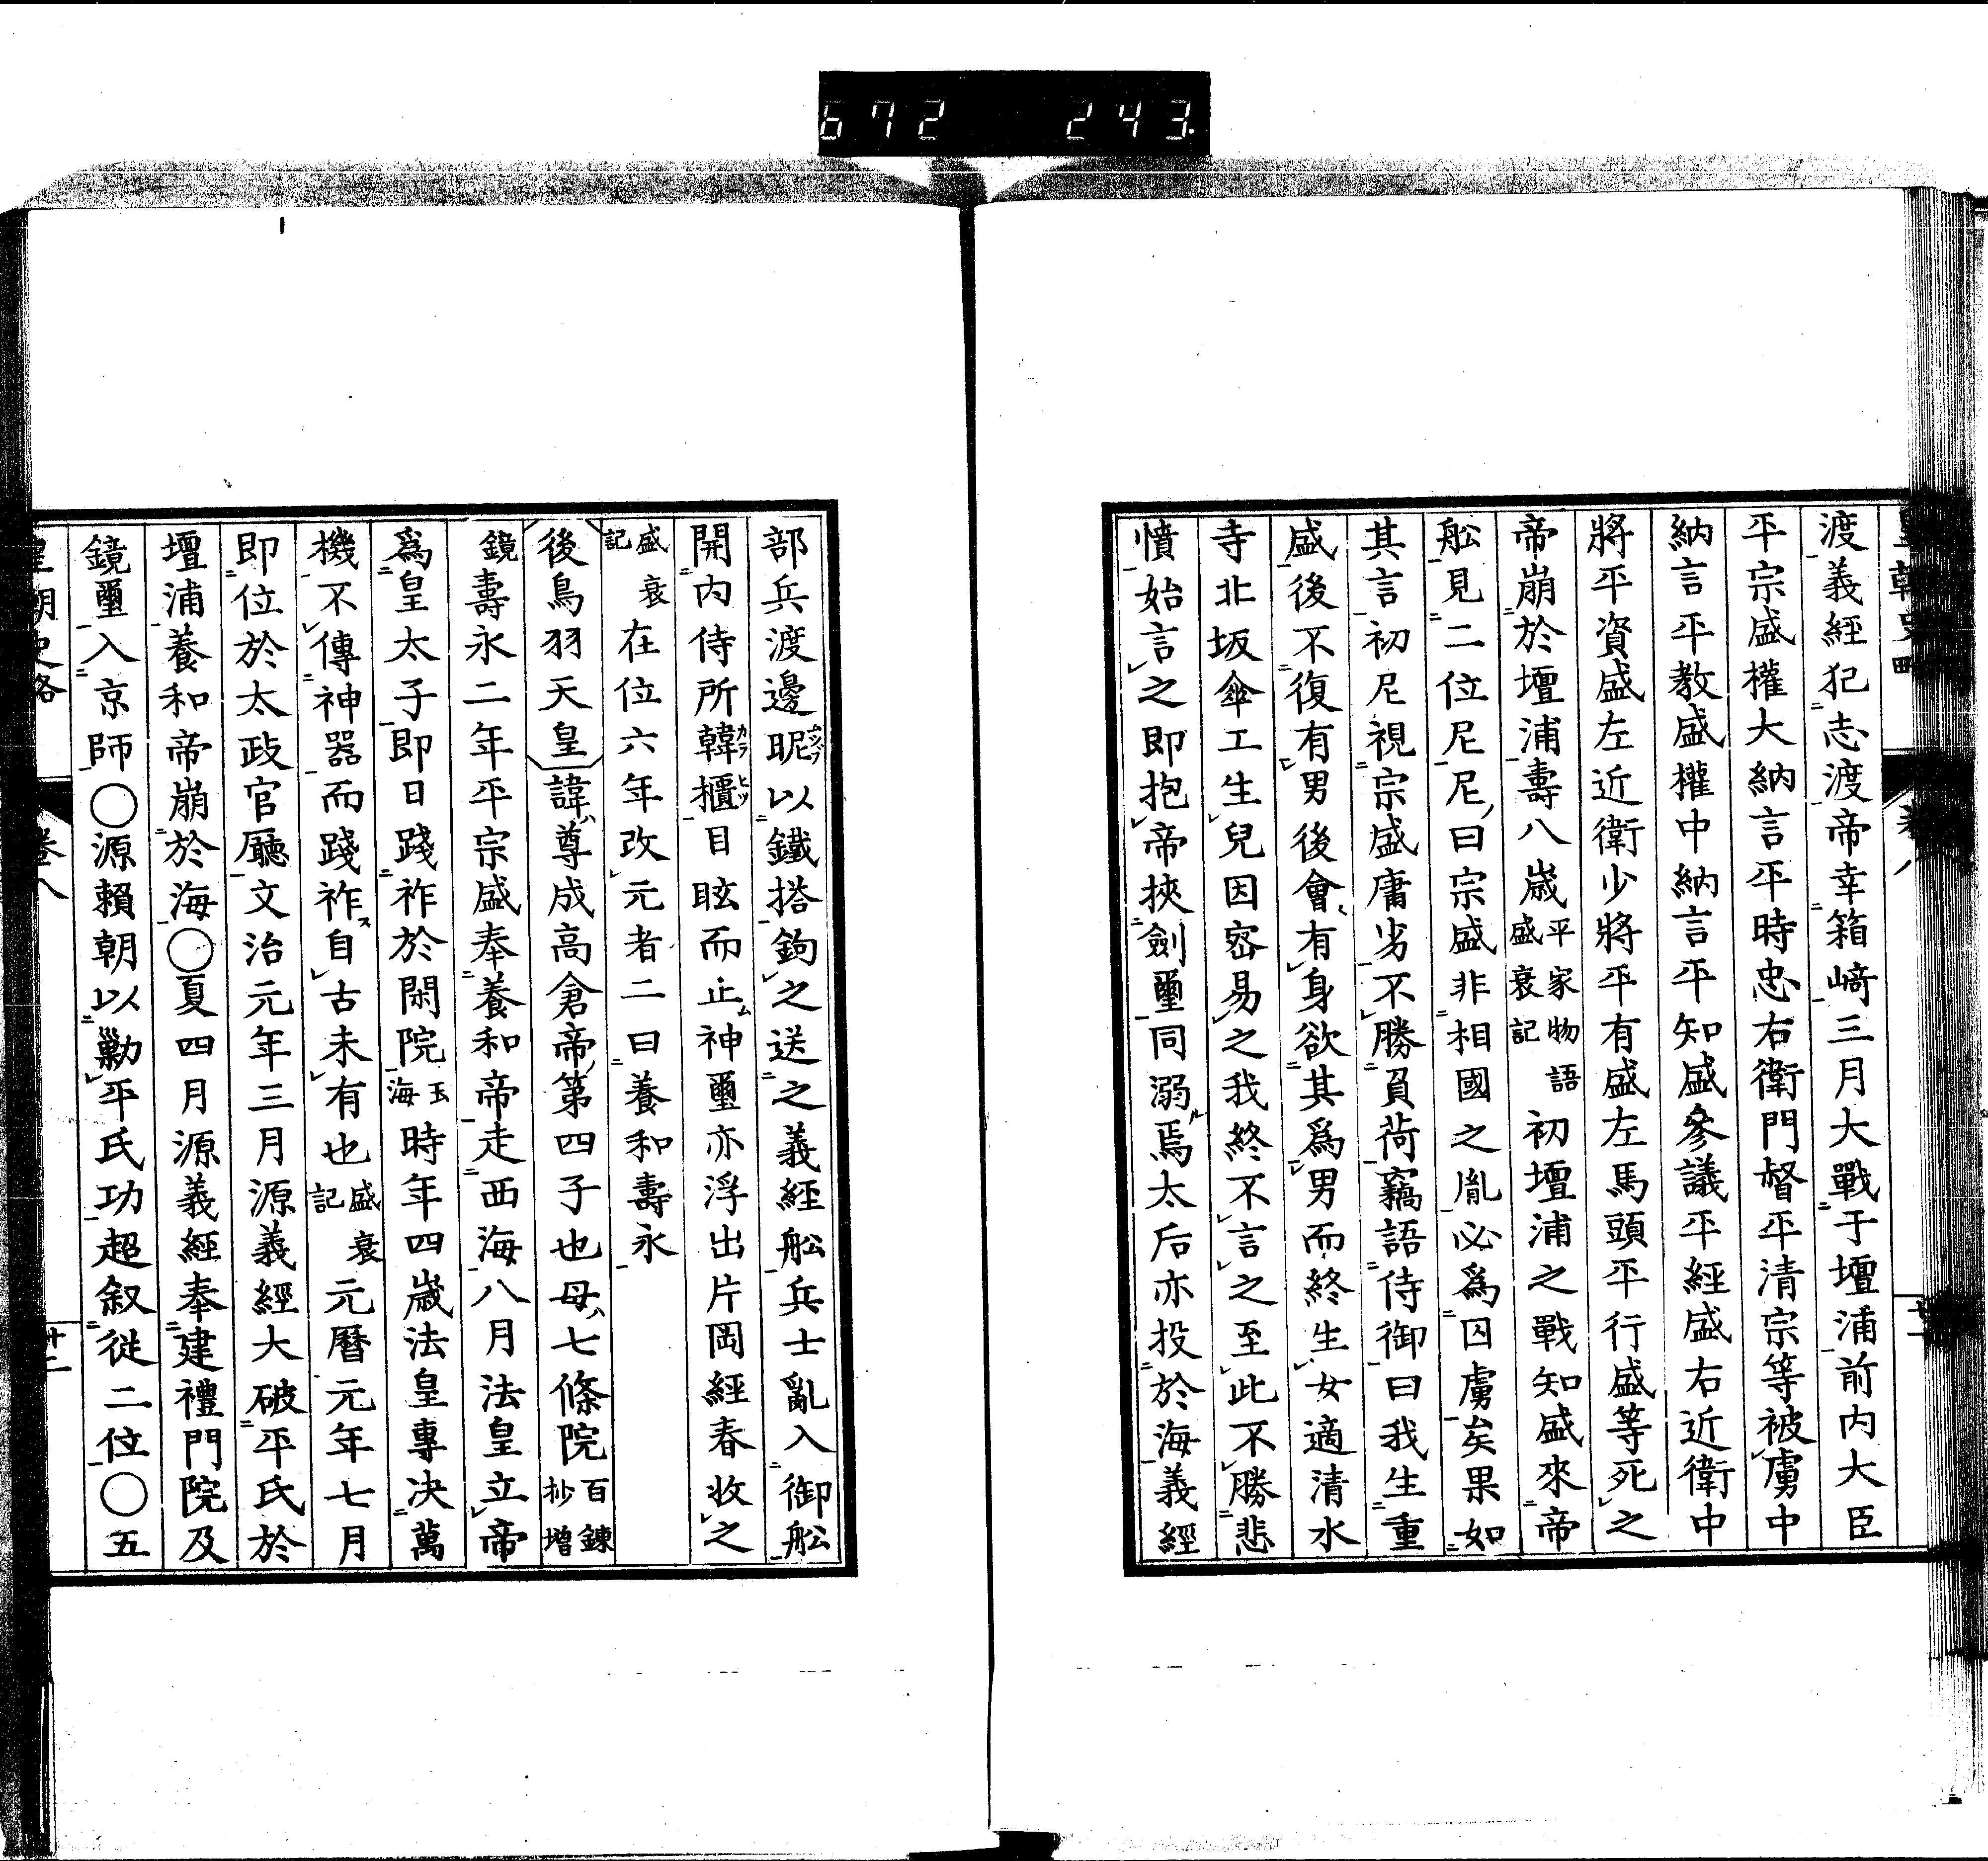 672 243
皇朝史略 卷八
渡義經犯志渡帝幸箱﨑三月大戰于壇浦前内大臣
平宗盛權大納言平時忠右衛門督平清宗等被虜中
納言平教盛權中納言平知盛參議平經盛右近衛中
將平資盛左近衛少將平有盛左馬頭平行盛等死之
帝崩於壇浦壽八歲平家物語盛衰記初壇浦之戰知盛來帝
舩見二位尼尼曰宗盛非相國之胤必爲囚虜矣果如
其言初尼視宗盛庸劣不勝負荷竊語侍御曰我生重
盛後不復有男後會有身欲其爲男而終生女適清水
寺北坂傘工生兒因密易之我終不言之至此不勝悲
憤始言之即抱帝挾劍璽同溺焉太后亦投於海義經
部兵渡邊昵以鐵搭鉤之送之義經舩兵士亂入御舩
開内侍所韓櫃目眩而止神璽亦浮出片岡經春收之
盛衰記在位六年改元者二曰養和壽永
後鳥羽天皇諱尊成高倉帝第四子也母七條院百鍊抄增
鏡壽永二年平宗盛奉養和帝走西海八月法皇立帝
爲皇太子即日踐祚於閑院玉海時年四歲法皇專决萬
機不傳神器而踐祚自古未有也盛衰記元曆元年七月
即位於太政官廳文治元年三月源義經大破平氏於
壇浦養和帝崩於海○夏四月源義經奉建禮門院及
鏡璽入京師○源賴朝以勦平氏功超叙從二位○五
皇朝史略 卷八 十二